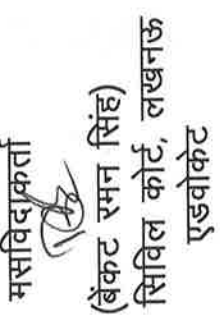 मसविदाकर्ता
(बेंकट रमन सिंह)
सिविल कोर्ट, लखनऊ
एडवोकेट